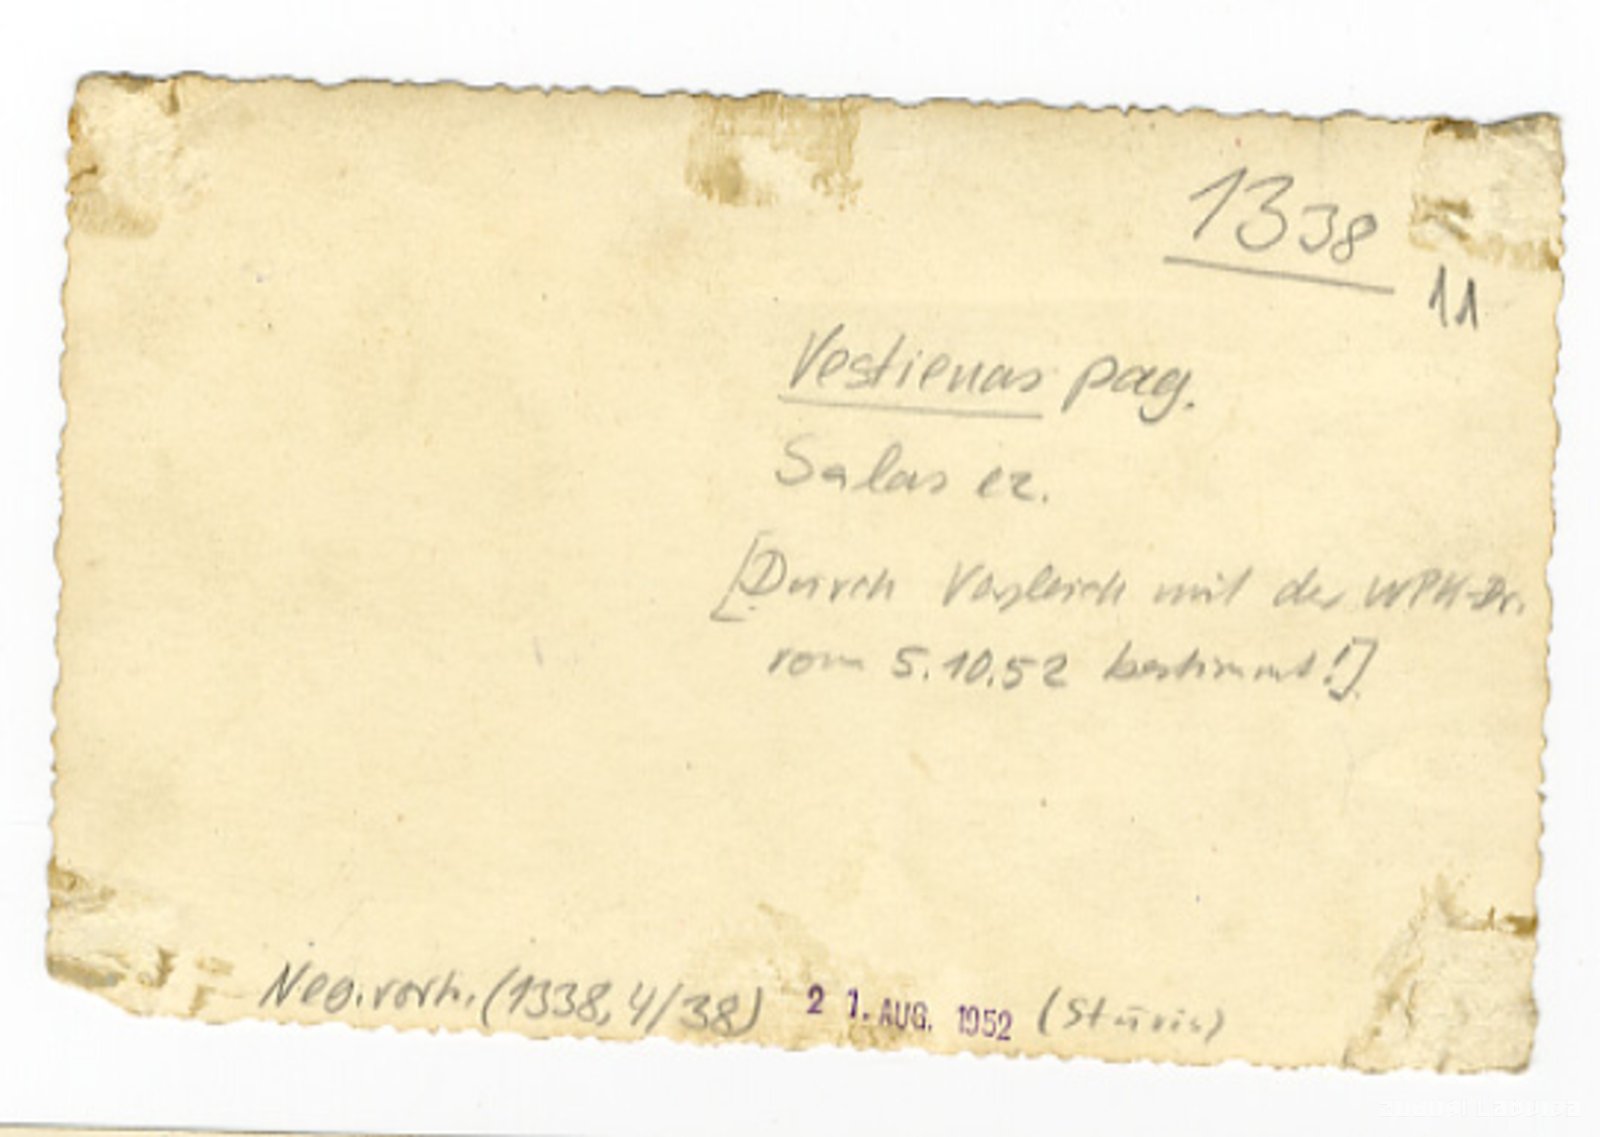 1338
11
Vestienas pag.
Salas ez.
[Durch Vergleich mit der WPK-Dr.
vom 5.10.52 bestimmt!]
Neg. vorh. (1338, 4/38) 21. AUG. 1952 (Stūris)